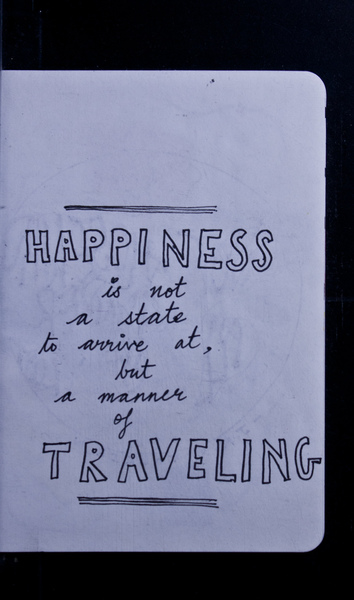 HAPPINESS
is not
a state
to arrive at,
but
a manner
of
TRAVELING